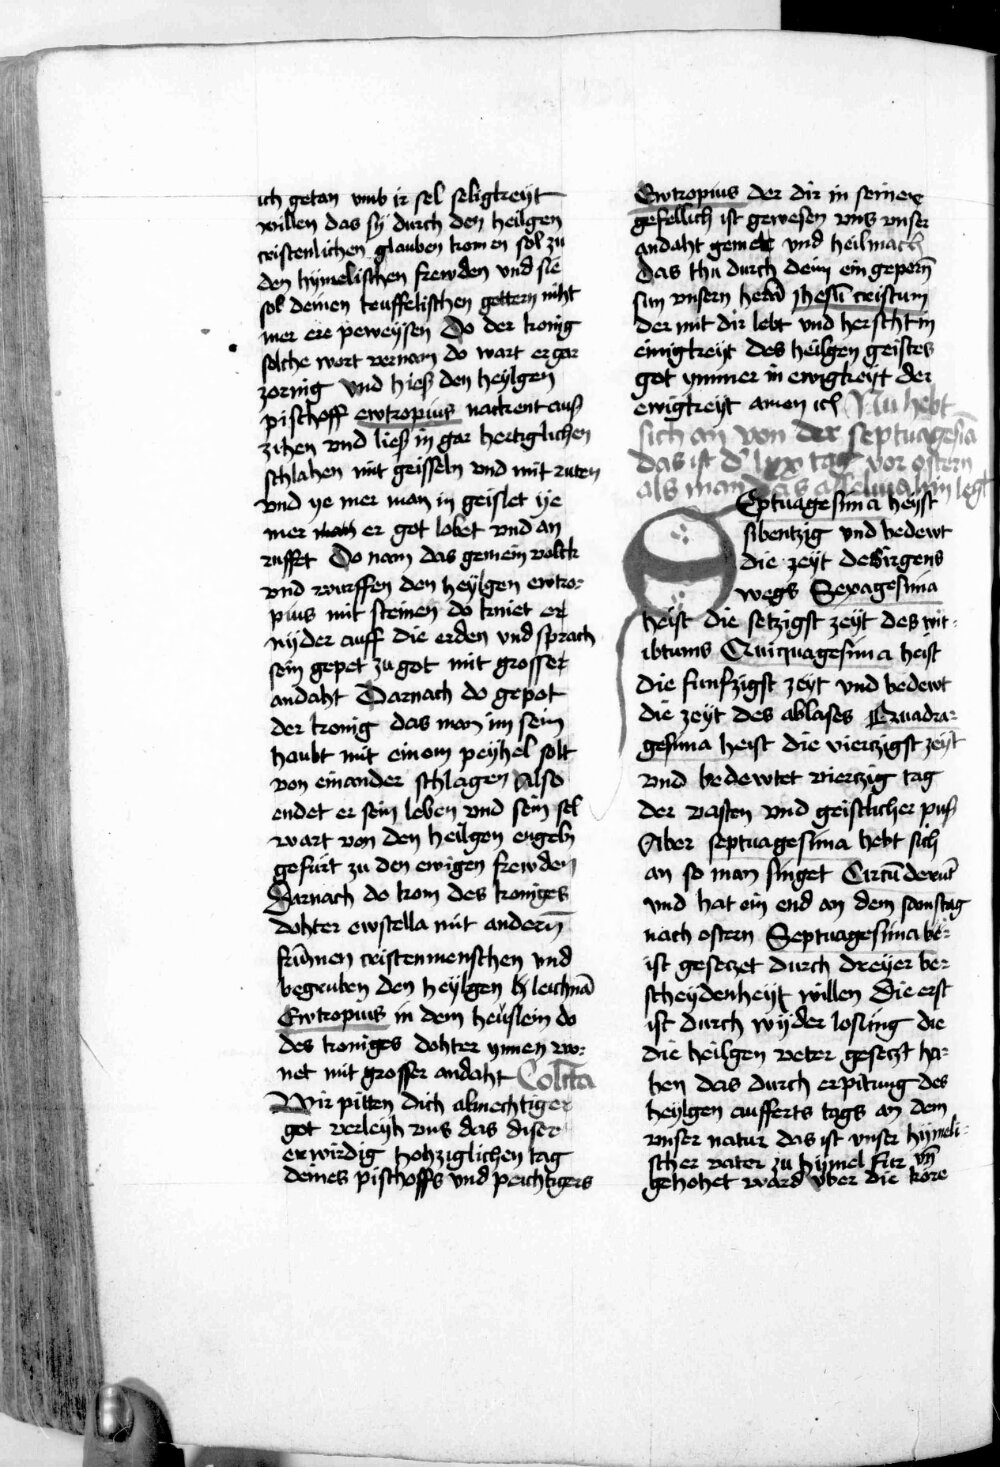 ich getan vmb ir sel seligkeyt
willen das sy durch den heilgen
cristenlichen glauben komen sol zu
den hymelischen frewden vnd sie
sol deinen teuffelischen gottern niht
mer ere peweysen Do der konig
solche wort vernam do wart er gar
zornig vnd hieß den heylgen
pischoff ewtropius nackent auß
zihen vnd ließ in gar hertiglichen
schlahen mit geisseln vnd mit ruten
vnd ye mer man in geislet ye
mer man er got lobet vnd an
rufft Do nam das gemein volck
vnd wurffen den heylgen ewtro-
pius mit steinen do kniet er
nyder auff die erden vnd sprach
sein gepet zu got mit grosser
andaht Darnach do gepot
der konig das man im sein
haubt mit einem peyhel solt
von einander schlagen Also
endet er sein leben vnd sein sel
wart von den heilgen engeln
gefurt zu den ewigen frewden
Darnach do kom des koniges
dohter ewstella mit andern̄
frūmen cristenmenschen vnd
begruben den heylgen leichnā
Ewtropius in dem heuslein do
des koniges dohter ynnen wo-
net mit grosser andaht Colcta
Wir pitten dich almechtiger
got verleyh vns das diser
erwirdig hohziglichen tag
deines pischoffs vnd peichtigers
Ewtropius der dir in seinem
gefellich ist gewesen vns vnser
andaht gemer vnd heilmach
Das thu durch deīn ein geporn̄
sun vnsern herrn̄ jhesū cristum
der mit dir lebt vnd herscht in
einigkeyt des heilgen geistes
got ymmer in ewigkeyt der
ewigkeyt amen ich Nu hebt
sich an von der septuagesīa
das ist d' lxx tag vor ostern
als man das alleluia hin legt
Septuagesima heyst
sibentzig vnd bedewt
die zeyt des irgens
wegs Sexagesima
heist die setzigst zeyt des wit-
ibtums Quiquagesima heist
die funfzigst zeyt vnd bedewt
die zeyt des ablases Quadra-
gesima heist die vierzigst zeyt
vnd bedewtet vierzig tag
der vasten vnd geistlicher puß
Aber septuagesima hebt sich
an so man singet Circūdederūt
vnd hat ein end an dem samstag
nach ostern Septuagesima
ist gesetzet durch dreyer be-
scheydenheyt willen Die erst
ist durch wyder losung die
die heilgen veter gesetzt ha-
ben das durch erpitung des
heylgen aufferts tags an dem
vnser natur das ist vnser hymeli-
scher vater zu hymel fur vn̄
gehohet ward vber die kore